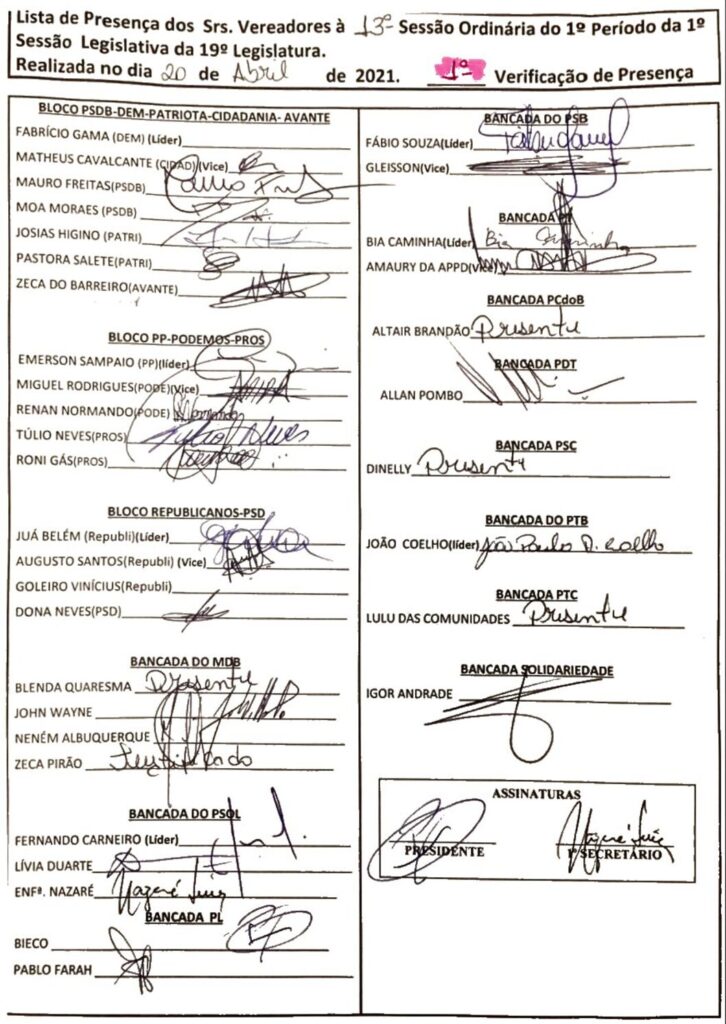 Lista de Presença dos Srs. Vereadores à 13ª Sessão Ordinária do 1º Período da 1º
Sessão Legislativa da 19º Legislatura.
Realizada no dia 20 de Abril de 2021. 1ª Verificação de Presença
BLOCO PSDB-DEM-PATRIOTA-CIDADANIA- AVANTE
FABRÍCIO GAMA (DEM) (Líder)
MATHEUS CAVALCANTE (CIDAD)(Vice)
MAURO FREITAS(PSDB)
MOA MORAES (PSDB)
JOSIAS HIGINO (PATRI)
PASTORA SALETE(PATRI)
ZECA DO BARREIRO(AVANTE)
BLOCO PP-PODEMOS-PROS
EMERSON SAMPAIO (PP)(líder)
MIGUEL RODRIGUES(PODE)(Vice)
RENAN NORMANDO(PODE)
TÚLIO NEVES(PROS) Túlio Neves
RONI GÁS(PROS)
BLOCO REPUBLICANOS-PSD
JUÁ BELÉM (Republi)(Líder)
AUGUSTO SANTOS(Republi) (Vice)
GOLEIRO VINÍCIUS(Republi)
DONA NEVES(PSD)
BANCADA DO MDB
BLENDA QUARESMA Presente
JOHN WAYNE
NENÉM ALBUQUERQUE
ZECA PIRÃO Justificado
BANCADA DO PSOL
FERNANDO CARNEIRO (Líder)
LÍVIA DUARTE
ENFª. NAZARÉ Nazaré Lima
BANCADA PL
BIECO
PABLO FARAH
BANCADA DO PSB
FÁBIO SOUZA(Líder)
GLEISSON(Vice)
BANCADA PT
BIA CAMINHA(Líder) Bia Caminha
AMAURY DA APPD(Vice)
BANCADA PCdoB
ALTAIR BRANDÃO Presente
BANCADA PDT
ALLAN POMBO
BANCADA PSC
DINELLY Presente
BANCADA DO PTB
JOÃO COELHO(líder) João Paulo A. Coelho
BANCADA PTC
LULU DAS COMUNIDADES Presente
BANCADA SOLIDARIEDADE
IGOR ANDRADE
ASSINATURAS
PRESIDENTE
Nazaré Lima
1º SECRETÁRIO